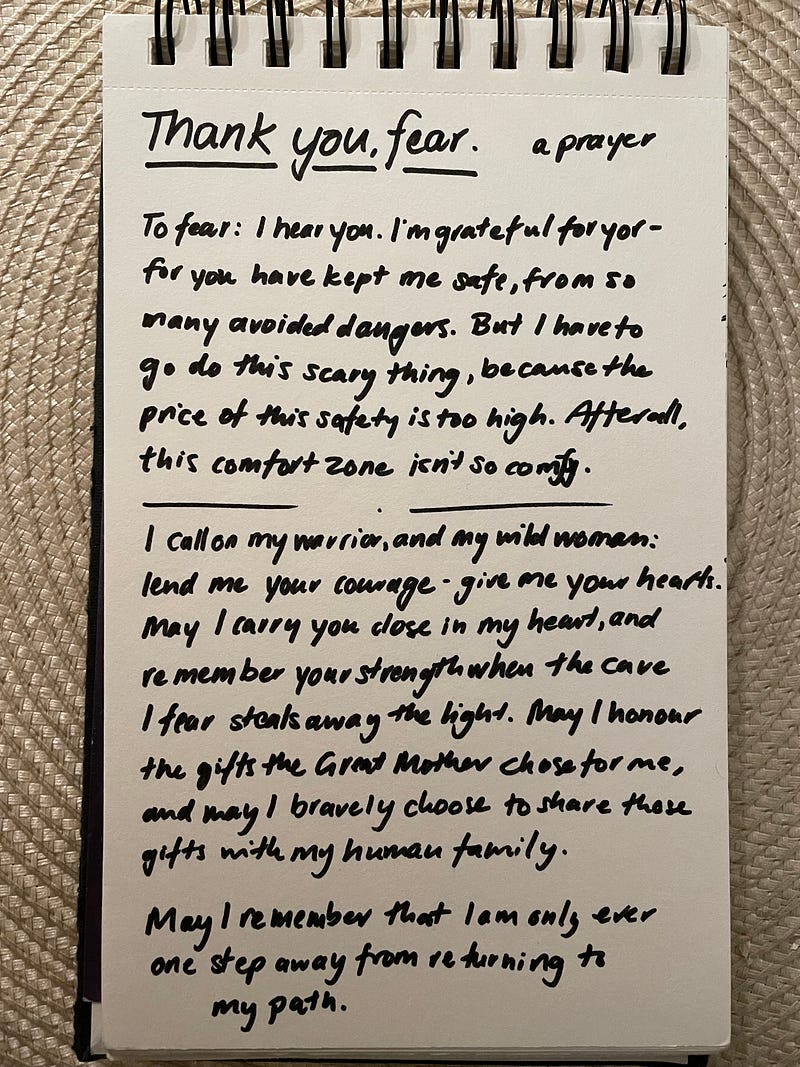 Thank you, fear. a prayer
To fear: I hear you. I'm grateful for yor-
for you have kept me safe, from so
many avoided dangers. But I have to
go do this scary thing, because the
price of this safety is too high. After all,
this comfort zone isn't so comfy.
I call on my warrior, and my wild woman:
lend me your courage - give me your hearts.
May I carry you close in my heart, and
remember your strength when the cave
I fear steals away the light. May I honour
the gifts the Great Mother chose for me,
and may I bravely choose to share those
gifts with my human family.
May I remember that I am only ever
one step away from returning to
my path.